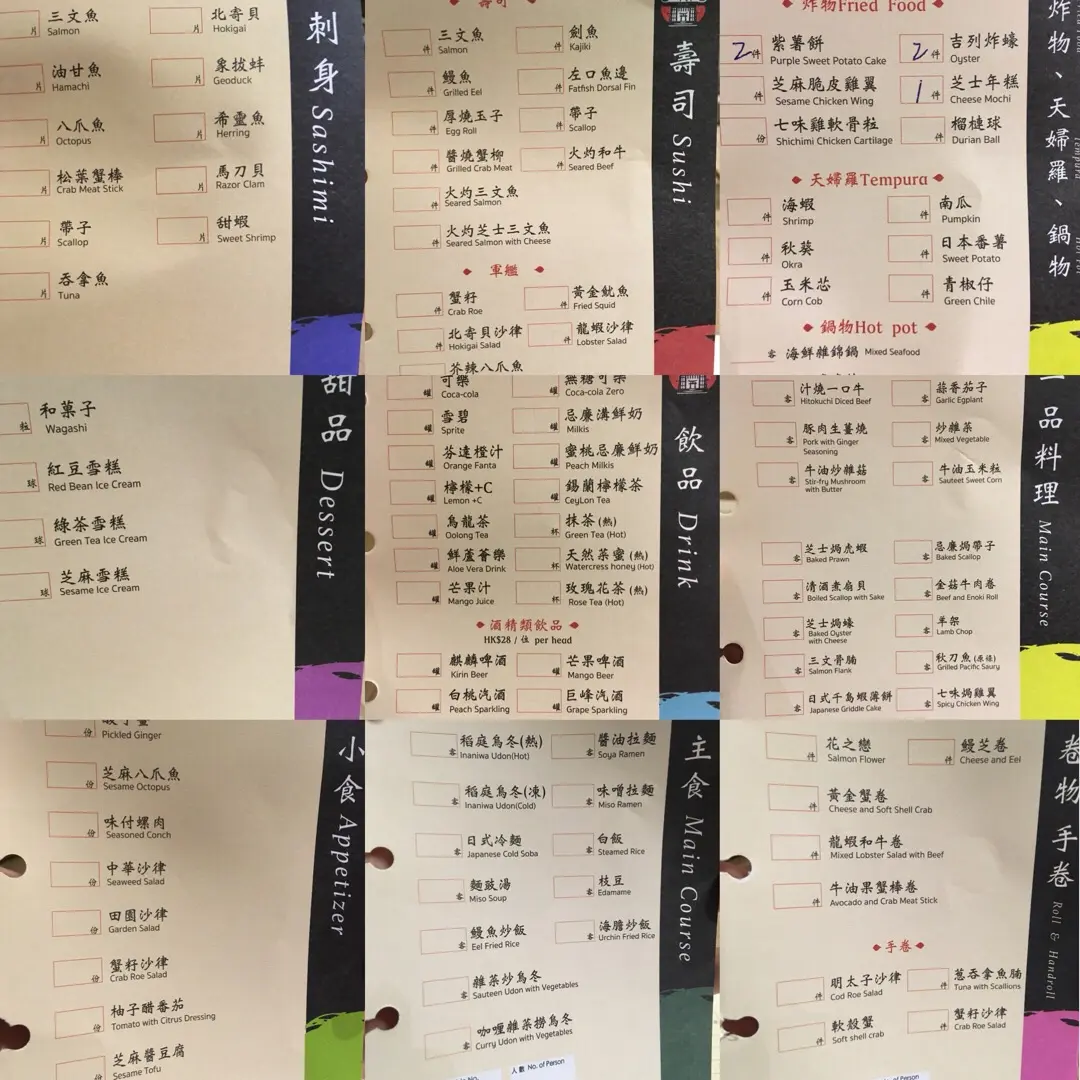 三文魚
Salmon
片
北寄貝
Hokigai
片
油甘魚
Hamachi
片
象拔蚌
Geoduck
片
八爪魚
Octopus
片
希靈魚
Herring
片
松葉蟹棒
Crab Meat Stick
片
馬刀貝
Razor Clam
片
帶子
Scallop
片
甜蝦
Sweet Shrimp
片
吞拿魚
Tuna
片
刺身 Sashimi
壽司
三文魚
Salmon
件
劍魚
Kajiki
件
鰻魚
Grilled Eel
件
左口魚邊
Fatfish Dorsal Fin
件
厚燒玉子
Egg Roll
件
帶子
Scallop
件
醬燒蟹柳
Grilled Crab Meat
件
火灼和牛
Seared Beef
件
火灼三文魚
Seared Salmon
件
火灼芝士三文魚
Seared Salmon with Cheese
件
軍艦
蟹籽
Crab Roe
件
黃金魷魚
Fried Squid
件
北寄貝沙律
Hokigai Salad
件
龍蝦沙律
Lobster Salad
件
芥辣八爪魚
壽司 Sushi
炸物Fried Food
2件
紫薯餅
Purple Sweet Potato Cake
2件
吉列炸蠔
Oyster
件
芝麻脆皮雞翼
Sesame Chicken Wing
1件
芝士年糕
Cheese Mochi
份
七味雞軟骨粒
Shichimi Chicken Cartilage
件
榴槤球
Durian Ball
天婦羅Tempura
件
海蝦
Shrimp
件
南瓜
Pumpkin
件
秋葵
Okra
件
日本番薯
Sweet Potato
件
玉米芯
Corn Cob
件
青椒仔
Green Chile
鍋物Hot pot
客 海鮮雜錦鍋 Mixed Seafood
炸物、天婦羅、鍋物
Tempura
和菓子
Wagashi
粒
紅豆雪糕
Red Bean Ice Cream
球
綠茶雪糕
Green Tea Ice Cream
球
芝麻雪糕
Sesame Ice Cream
球
甜品 Dessert
可樂
Coca-cola
罐
無糖可樂
Coca-cola Zero
雪碧
Sprite
罐
忌廉溝鮮奶
Milkis
罐
芬達橙汁
Orange Fanta
罐
蜜桃忌廉鮮奶
Peach Milkis
罐
檸檬+C
Lemon +C
罐
錫蘭檸檬茶
CeyLon Tea
罐
烏龍茶
Oolong Tea
罐
抹茶(熱)
Green Tea (Hot)
杯
鮮蘆薈樂
Aloe Vera Drink
罐
天然菜蜜(熱)
Watercress honey (Hot)
杯
芒果汁
Mango Juice
罐
玫瑰花茶(熱)
Rose Tea (Hot)
杯
酒精類飲品
HK$28 / 位 per head
麒麟啤酒
Kirin Beer
罐
芒果啤酒
Mango Beer
罐
白桃汽酒
Peach Sparkling
罐
巨峰汽酒
Grape Sparkling
罐
飲品 Drink
汁燒一口牛
Hitokuchi Diced Beef
客
蒜番茄子
Garlic Egplant
客
豚肉生薑燒
Pork with Ginger
Seasoning
客
炒雜菜
Mixed Vegetable
客
牛油炒雜菇
Stir-fry Mushroom
with Butter
客
牛油玉米粒
Sauteet Sweet Corn
客
芝士焗虎蝦
Baked Prawn
客
忌廉焗帶子
Baked Scallop
客
清酒煮扇貝
Boiled Scallop with Sake
客
金菇牛肉卷
Beef and Enoki Roll
客
芝士焗蠔
Baked Oyster
with Cheese
客
羊架
Lamb Chop
客
三文骨腩
Salmon Flank
客
秋刀魚(原條)
Grilled Pacific Saury
客
日式千島蝦薄餅
Japanese Griddle Cake
客
七味焗雞翼
Spicy Chicken Wing
客
品料理 Main Course
Pickled Ginger
份
芝麻八爪魚
Sesame Octopus
份
味付螺肉
Seasoned Conch
份
中華沙律
Seaweed Salad
份
田園沙律
Garden Salad
份
蟹籽沙律
Crab Roe Salad
份
柚子醋番茄
Tomato with Citrus Dressing
份
芝麻醬豆腐
Sesame Tofu
份
小食 Appetizer
稻庭烏冬(熱)
Inaniwa Udon(Hot)
客
醬油拉麵
Soya Ramen
客
稻庭烏冬(凍)
Inaniwa Udon(Cold)
客
味噌拉麵
Miso Ramen
客
日式冷麵
Japanese Cold Soba
客
白飯
Steamed Rice
客
麵豉湯
Miso Soup
客
枝豆
Edamame
客
鰻魚炒飯
Eel Fried Rice
客
海膽炒飯
Urchin Fried Rice
客
雜菜炒烏冬
Sauteen Udon with Vegetables
客
咖喱雜菜撈烏冬
Curry Udon with Vegetables
客
人數 No. of Person
主食 Main Course
花之戀
Salmon Flower
件
鰻芝卷
Cheese and Eel
件
黃金蟹卷
Cheese and Soft Shell Crab
件
龍蝦和牛卷
Mixed Lobster Salad with Beef
件
牛油果蟹棒卷
Avocado and Crab Meat Stick
件
手卷
明太子沙律
Cod Roe Salad
件
蔥吞拿魚腩
Tuna with Scallions
件
軟殼蟹
Soft shell crab
件
蟹籽沙律
Crab Roe Salad
件
of Person
卷物 手卷 Roll & Handroll